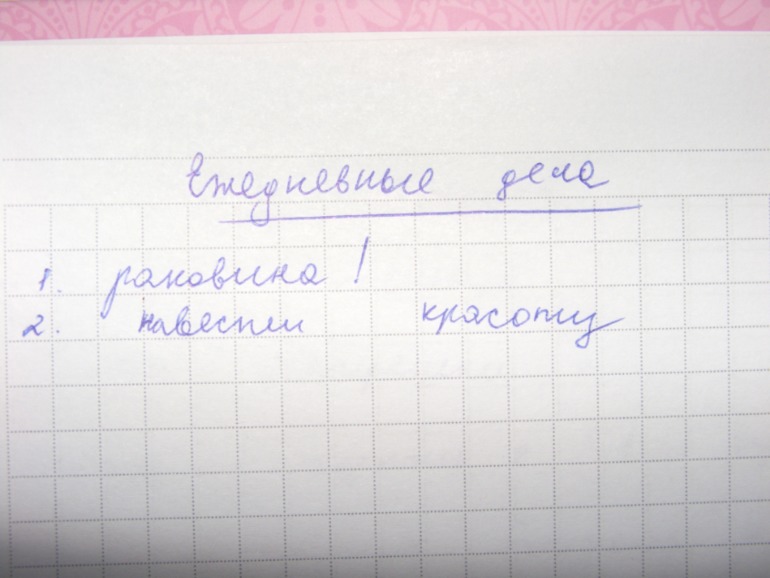 Ежедневные дела
1. раковина!
2. навести красоту